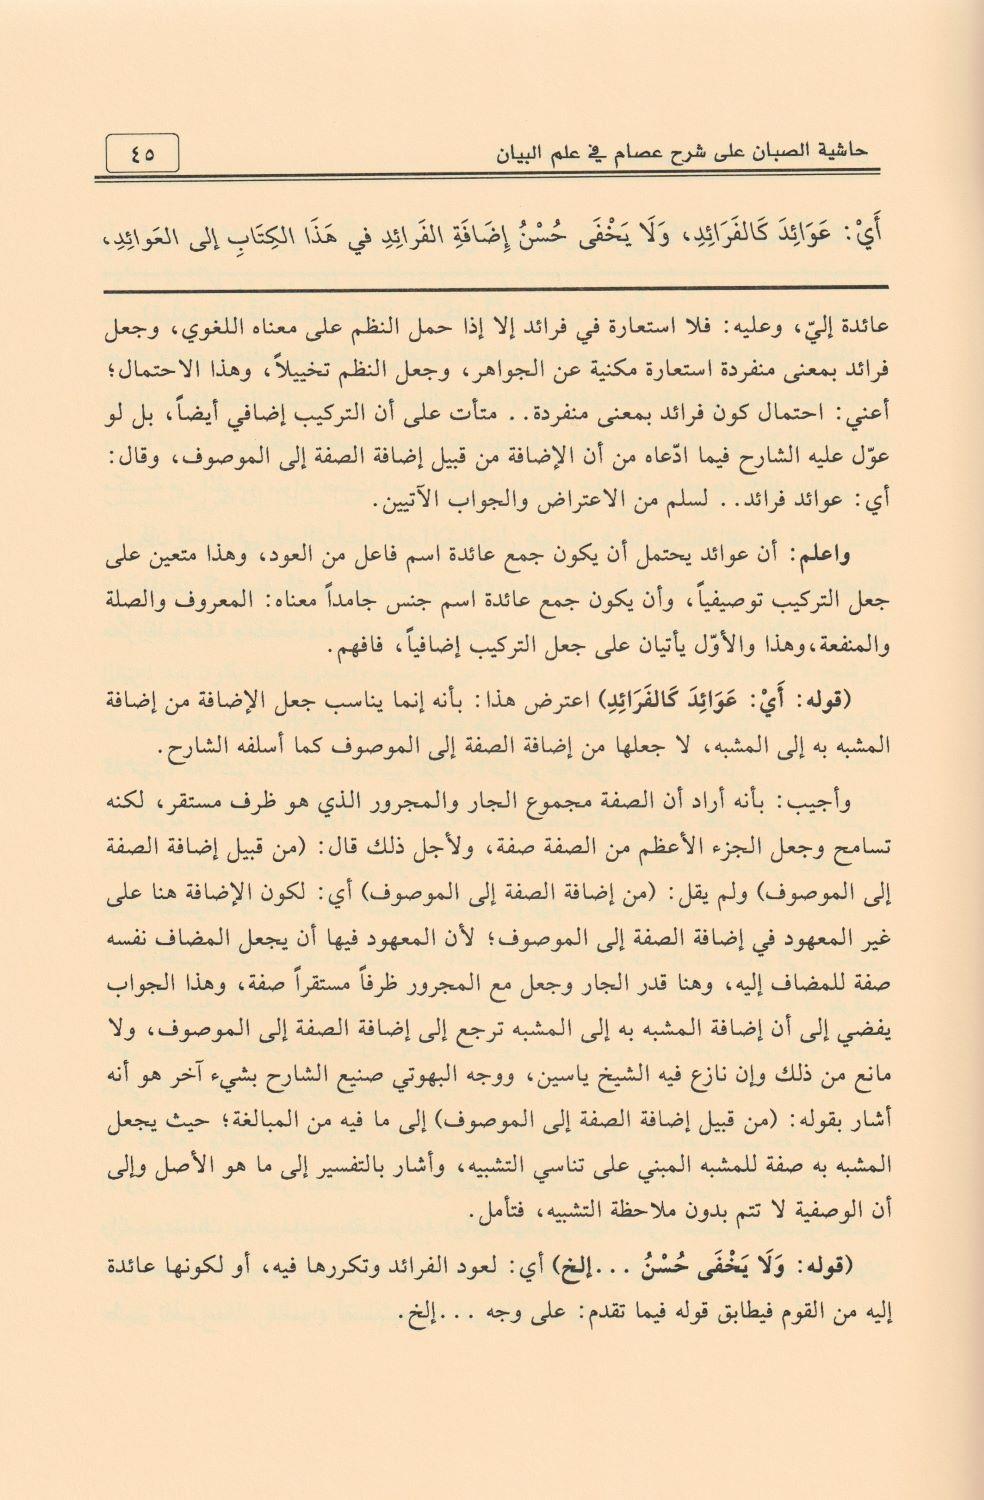 حاشية الصبان على شرح عصام في علم البيان
٤٥
أَيْ: عَوَائِدَ كَالفَرَائِدِ، وَلَا يَخْفَى حُسْنُ إِضَافَةِ الفَرائِدِ في هَذَا الكِتَابِ إلى العَوائِدِ،
عائدة إليّ، وعليه: فلا استعارة في فرائد إلا إذا حمل النظم على معناه اللغوي، وجعل
فرائد بمعنى منفردة استعارة مكنية عن الجواهر، وجعل النظم تخييلاً، وهذا الاحتمال؛
أعني: احتمال كون فرائد بمعنى منفردة.. متأت على أن التركيب إضافي أيضاً، بل لو
عوّل عليه الشارح فيما ادّعاه من أن الإضافة من قبيل إضافة الصفة إلى الموصوف، وقال:
أي: عوائد فرائد.. لسلم من الاعتراض والجواب الآتيين.
واعلم: أن عوائد يحتمل أن يكون جمع عائدة اسم فاعل من العود، وهذا متعين على
جعل التركيب توصيفياً، وأن يكون جمع عائدة اسم جنس جامداً معناه: المعروف والصلة
والمنفعة،وهذا والأوّل يأتيان على جعل التركيب إضافياً، فافهم.
(قوله: أَيْ: عَوَائِدَ كَالفَرَائِدِ) اعترض هذا: بأنه إنما يناسب جعل الإضافة من إضافة
المشبه به إلى المشبه، لا جعلها من إضافة الصفة إلى الموصوف كما أسلفه الشارح.
وأجيب: بأنه أراد أن الصفة مجموع الجار والمجرور الذي هو ظرف مستقر، لكنه
تسامح وجعل الجزء الأعظم من الصفة صفة، ولأجل ذلك قال: (من قبيل إضافة الصفة
إلى الموصوف) ولم يقل: (من إضافة الصفة إلى الموصوف) أي: لكون الإضافة هنا على
غير المعهود في إضافة الصفة إلى الموصوف؛ لأن المعهود فيها أن يجعل المضاف نفسه
صفة للمضاف إليه، وهنا قدر الجار وجعل مع المجرور ظرفاً مستقراً صفة، وهذا الجواب
يفضي إلى أن إضافة المشبه به إلى المشبه ترجع إلى إضافة الصفة إلى الموصوف، ولا
مانع من ذلك وإن نازع فيه الشيخ ياسين، ووجه البهوتي صنيع الشارح بشيء آخر هو أنه
أشار بقوله: (من قبيل إضافة الصفة إلى الموصوف) إلى ما فيه من المبالغة؛ حيث يجعل
المشبه به صفة للمشبه المبني على تناسي التشبيه، وأشار بالتفسير إلى ما هو الأصل وإلى
أن الوصفية لا تتم بدون ملاحظة التشبيه، فتأمل.
(قوله: وَلَا يَخْفَى حُسْنُ ...إلخ) أي: لعود الفرائد وتكررها فيه، أو لكونها عائدة
إليه من القوم فيطابق قوله فيما تقدم: على وجه ...إلخ.